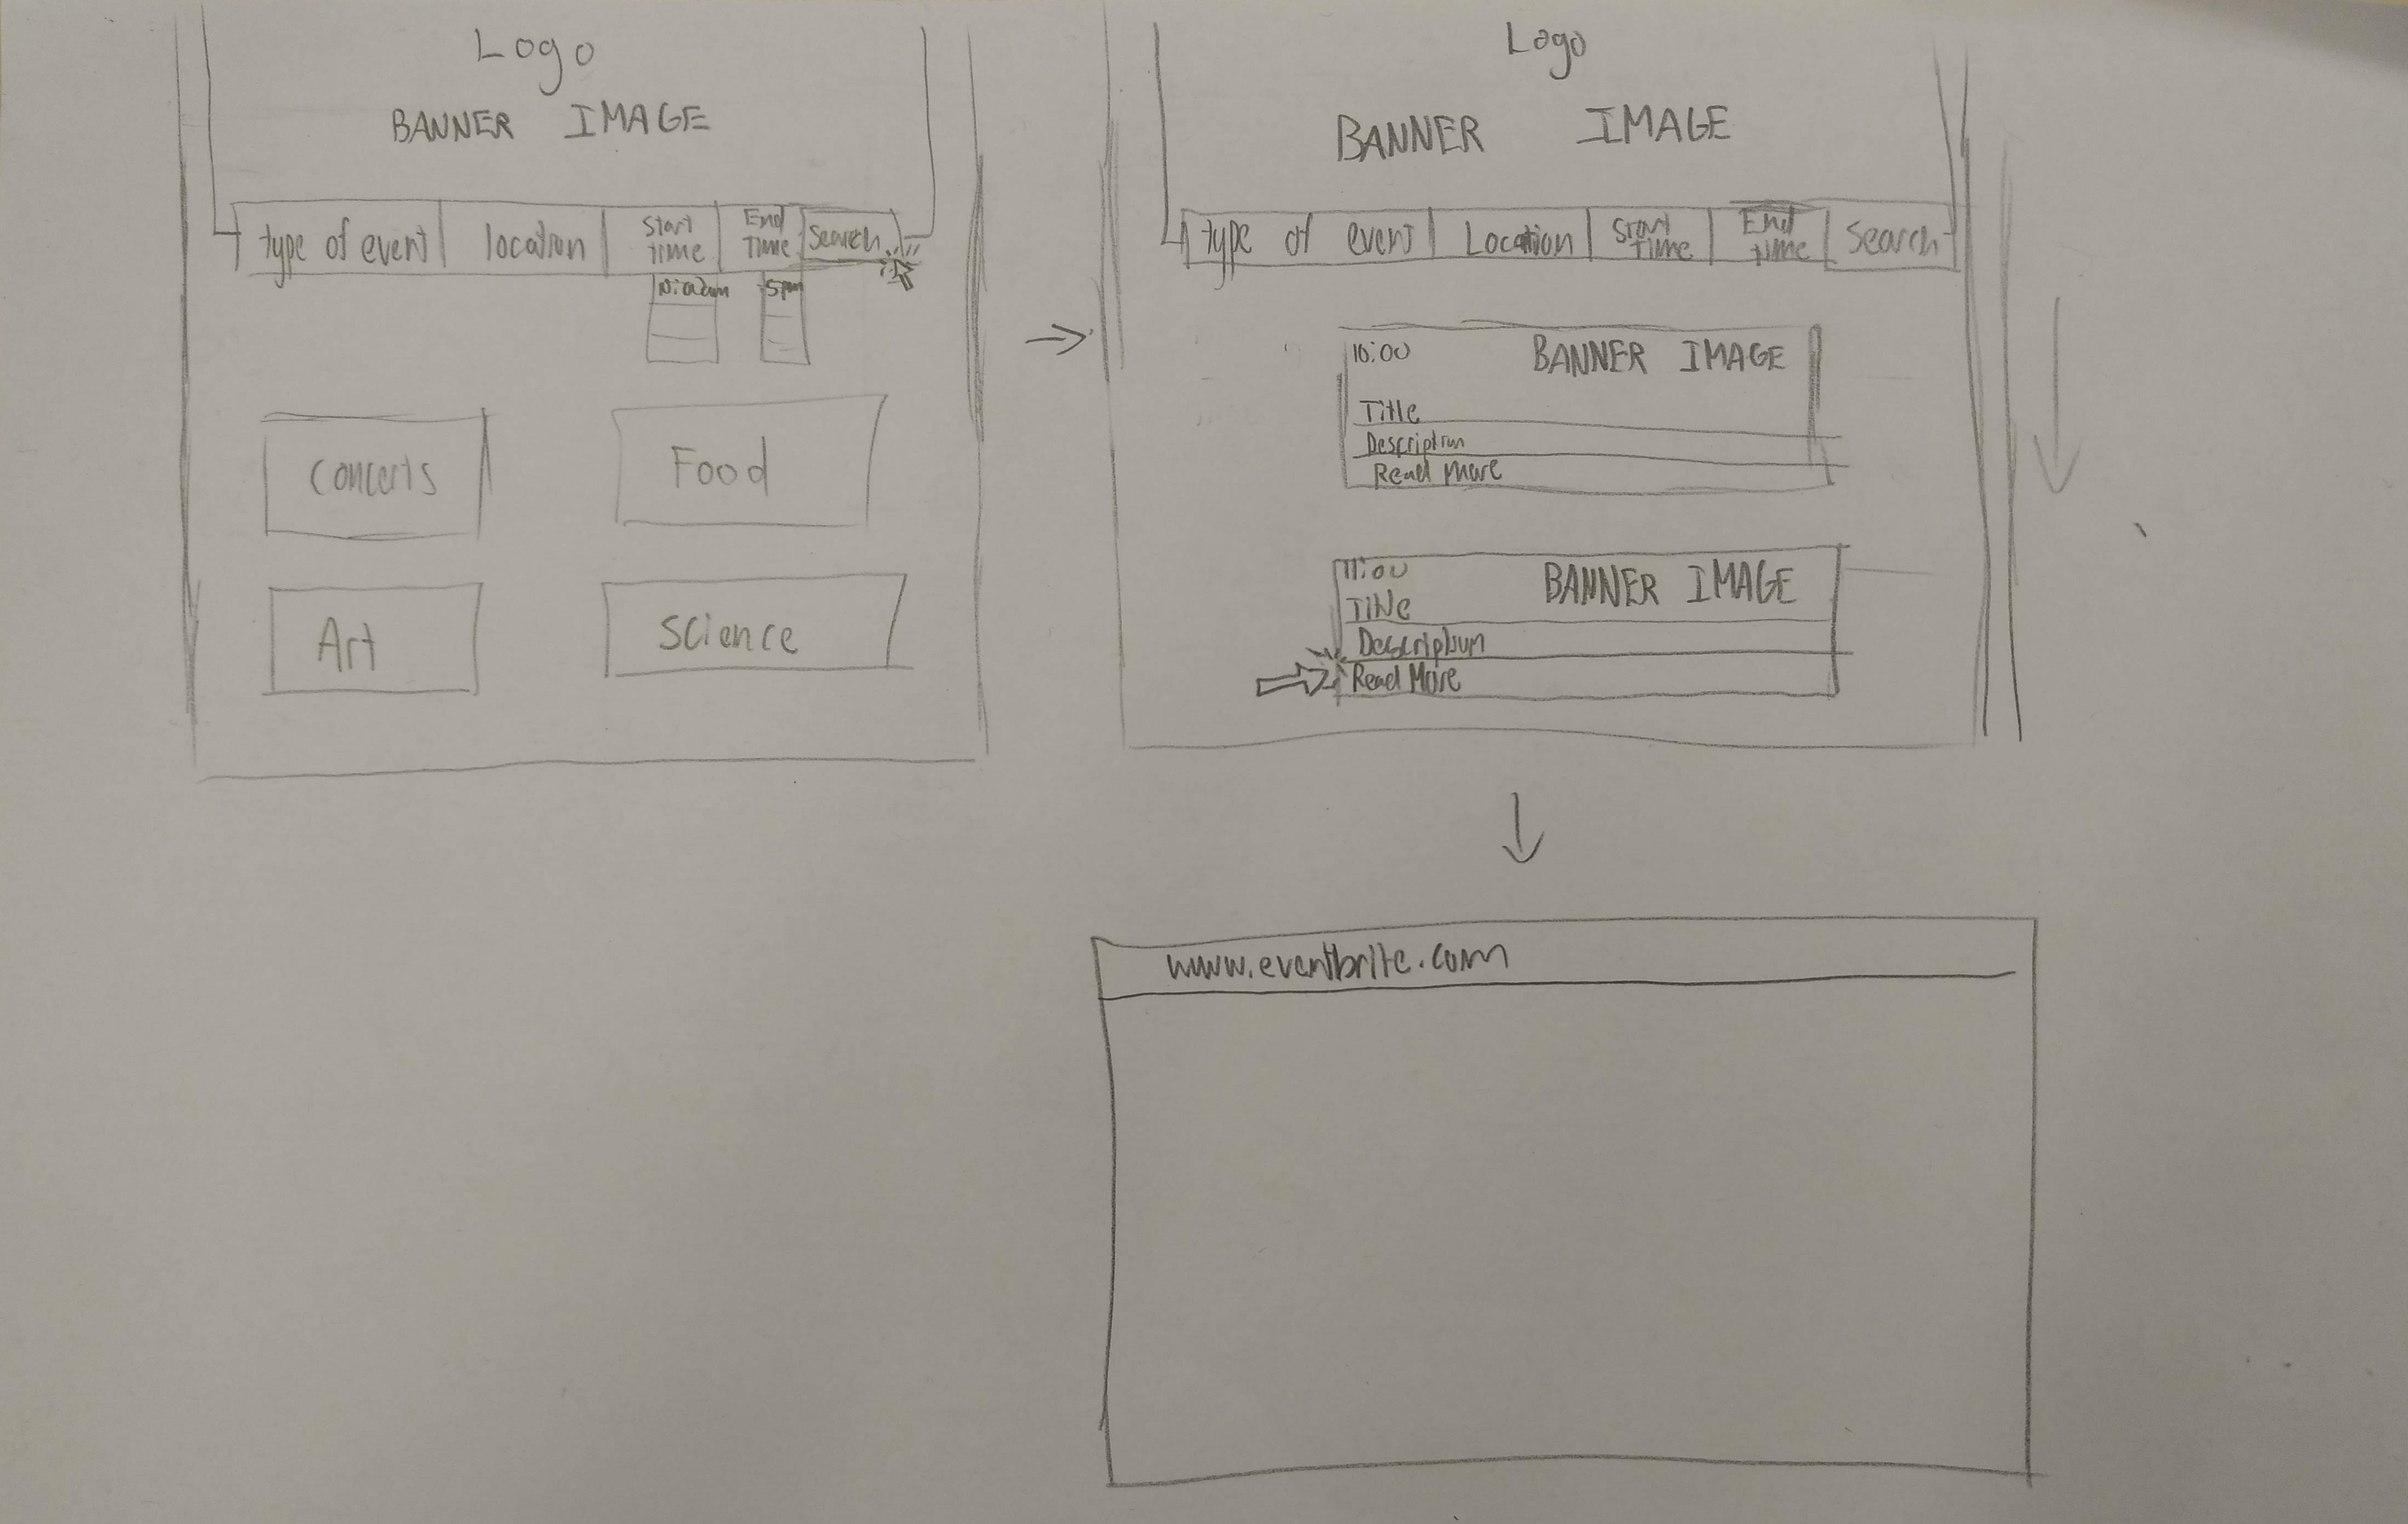 Logo
BANNER IMAGE
type of event location Start Time End Time Search
5pm
Concerts Food
Art Science
Logo
BANNER IMAGE
type of event Location Start Time End Time Search
10:00 BANNER IMAGE
Title
Description
Read More
11:00 BANNER IMAGE
Title
Description
Read More
www.eventbrite.com